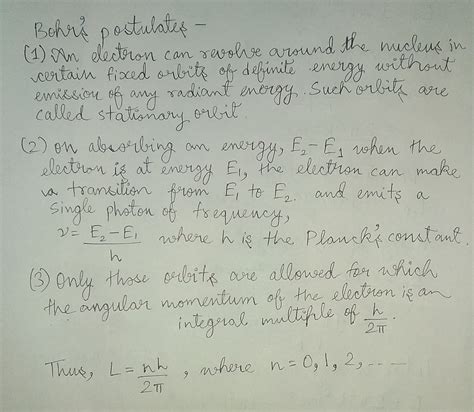 Bohr's postulates –
(1) An electron can revolve around the nucleus in
certain fixed orbits of definite energy without
emission of any radiant energy. Such orbits are
called stationary orbit.
(2) On absorbing an energy, E₂-E₁ when the
electron is at energy E₁, the electron can make
a transition from E₁ to E₂. and emits a
single photon of frequency,
ν = (E₂-E₁)/h where h is the Planck's constant.
(3) Only those orbits are allowed for which
the angular momentum of the electron is an
integral multiple of h/2π.
Thus, L = nh/2π, where n = 0, 1, 2, ----